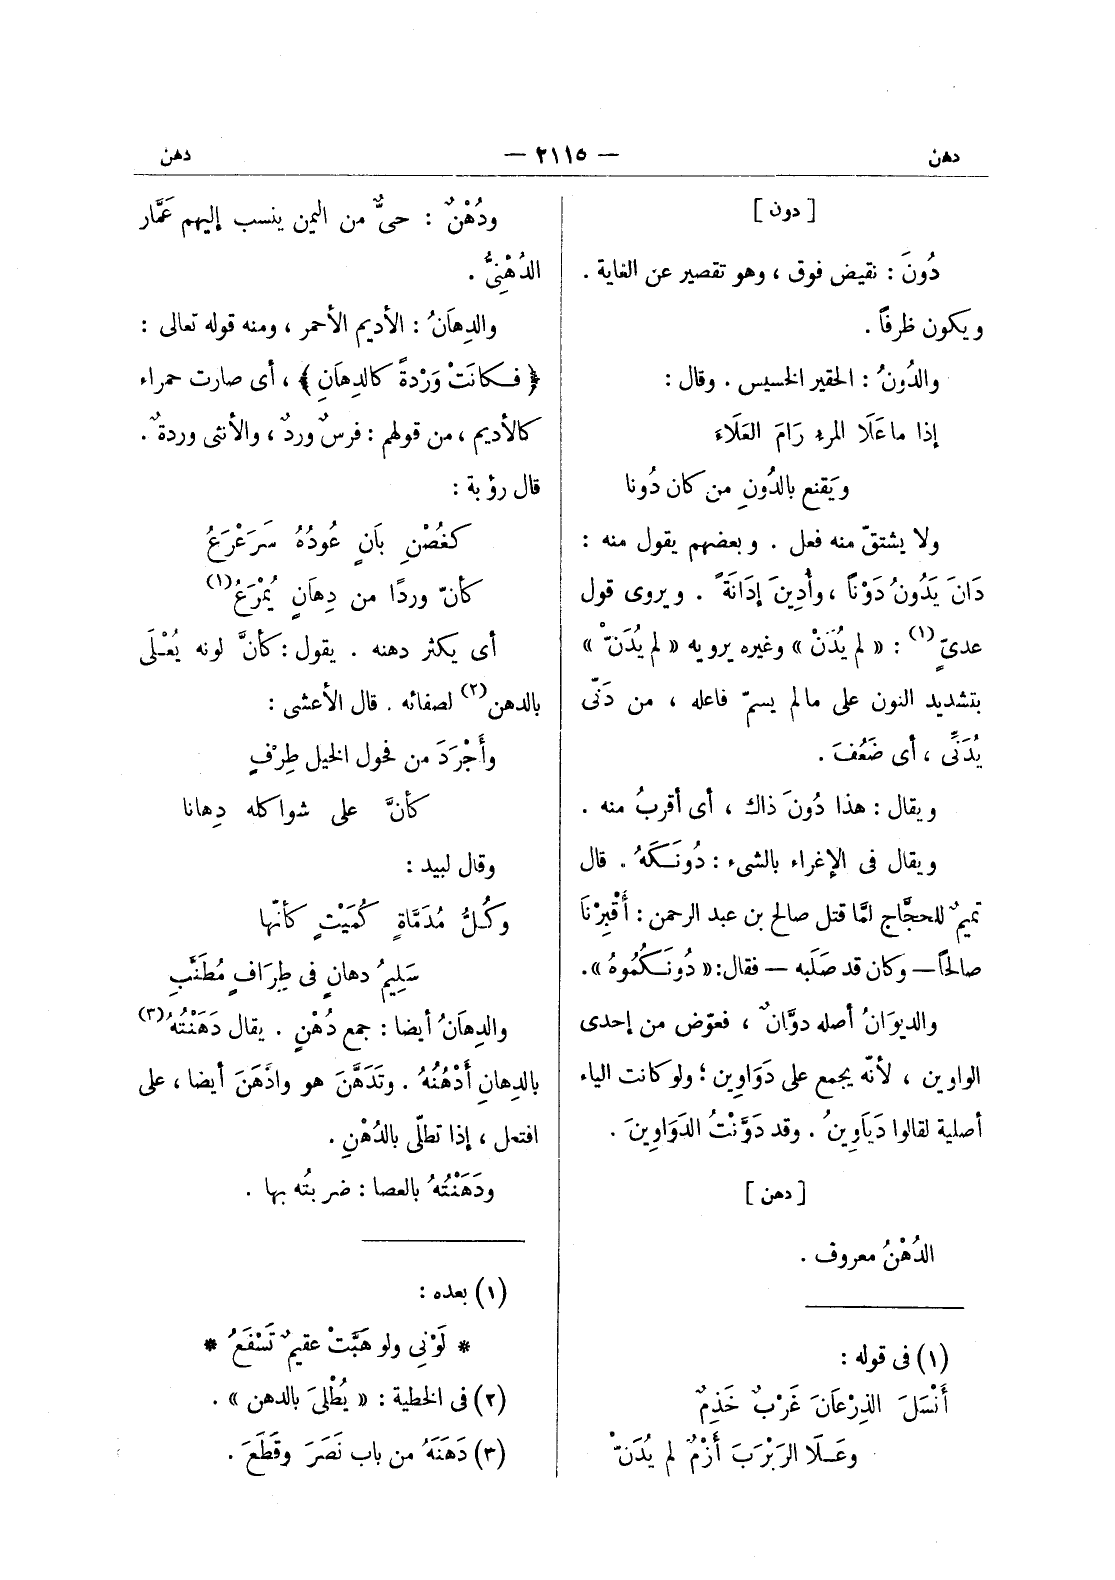 دهن — ٢١١٥ — دهن
[ دون ]
دُونَ : نقيض فوق ، وهو تقصير عن الغاية .
ويكون ظرفاً .
والدُونُ : الحقير الخسيس . وقال :
إذا ما عَلَا المرء رَامَ العَلَاءَ
ويَقنع بالدُونِ من كان دُونا
ولا يشتقّ منه فعل . وبعضهم يقول منه :
دَانَ يَدُونُ دَوْناً ، وأُدِينَ إدَانَةً . ويروى قول
عدىٍّ (١) : « لم يُدَنْ » وغيره يرويه « لم يُدَنّْ »
بتشديد النون على مالم يسمّ فاعله ، من دَنَّى
يُدَنِّى ، أى ضَعُفَ .
ويقال : هذا دُونَ ذاك ، أى أقربُ منه .
ويقال فى الإغراء بالشىء : دُونَـكَهُ . قال
تميمٌ للحجَّاج لمَّا قتل صالح بن عبد الرحمن : أَقْبِرْنَا
صالحاً — وكان قد صَلَبه — فقال: « دُونَـكُمُوهُ ».
والديوَانُ أصله دوَّانٌ ، فعوّض من إحدى
الواوين ، لأنّه يجمع على دَوَاوِين ؛ ولو كانت الياء
أصلية لقالوا دَيَاوِينُ . وقد دَوَّنْتُ الدَوَاوِينَ .
[ دهن ]
الدُهْنُ معروف .
(١) فى قوله :
أَنْسَلَ الذِرْعَانَ غَرْبٌ خَذِمٌ
وعَـلَا الرَبْرَبَ أَزْمٌ لم يُدَنّْ
ودُهْنٌ : حىٌّ من اليمن ينسب إليهم عَمَّار
الدُهْنِىُّ .
والدِهاَنُ : الأديم الأحمر ، ومنه قوله تعالى :
﴿ فـكانَتْ وَرْدةً كالدِهانِ ﴾ ، أى صارت حمراء
كالأديم ، من قولهم : فرسٌ وردٌ ، والأنثى وردةٌ .
قال رؤبة :
كغُصْنِ بَانٍ عُودُهُ سَرَعْرَعُ
كأنّ وردًا من دِهاَنٍ يُمْرَعُ (١)
أى يكثر دهنه . يقول : كأنَّ لونه يُعْـلَى
بالدهن (٢) لصفائه . قال الأعشى :
وأَجْرَدَ من فحول الخيل طِرْفٍ
كأنَّ على شواكله دِهانا
وقال لبيد :
وكُـلُّ مُدَمَّاةٍ كُمَيْتٍ كأنّها
سَلِيمُ دهانٍ فى طِرَافٍ مُطَنَّبِ
والدِهاَنُ أيضا : جمع دُهْنٍ . يقال دَهَنْتُهُ (٣)
بالدِهانِ أَدْهُنُهُ . وتَدَهَّنَ هو وادَّهَنَ أيضا ، على
افتعل ، إذا تطلّى بالدُهْنِ .
ودَهَنْتُهُ بالعصا : ضربتُه بها .
(١) بعده :
* لَوْنِى ولو هَبَّتْ عقيمٌ تَسْفَعُ *
(٢) فى الخطية : « يُطْلِىَ بالدهن » .
(٣) دَهَنَهُ من باب نَصَرَ وقَطَعَ .